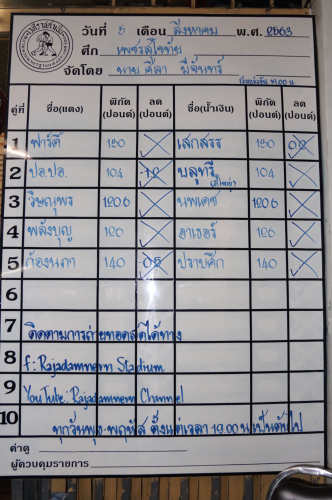 วันที่ 5 เดือน สิงหาคม พ.ศ. 2563
ศึก เพชรสุโขทัย
จัดโดย นาย ศิลา มีจันทร์
เริ่มแข่งขัน 19.00 น.
คู่ที่ ชื่อ(แดง) พิกัด (ปอนด์) ลด (ปอนด์) ชื่อ(น้ำเงิน) พิกัด (ปอนด์) ลด (ปอนด์)
1 ฟาร์ดี้ 130 เสกสรร 130
2 ป.อ.ป.อ. 104 -1.2 บลูทรี (ตี๋ใหญ่) 104
3 วิษณุพร 120.6 นพเดช 120.6
4 พลังบุญ 126 อาเธอร์ 126
5 ก้องนภา 140 -0.5 ปราบศึก 140
6
7 ติดตามการถ่ายทอดสดได้ทาง
8 f: Rajadamnern Stadium
9 YouTube: Rajadamnern Channel
10 ทุกวันพุธ-พฤหัส ตั้งแต่เวลา 19.00 น เป็นต้นไป
ค่าดู
ผู้ควบคุมรายการ